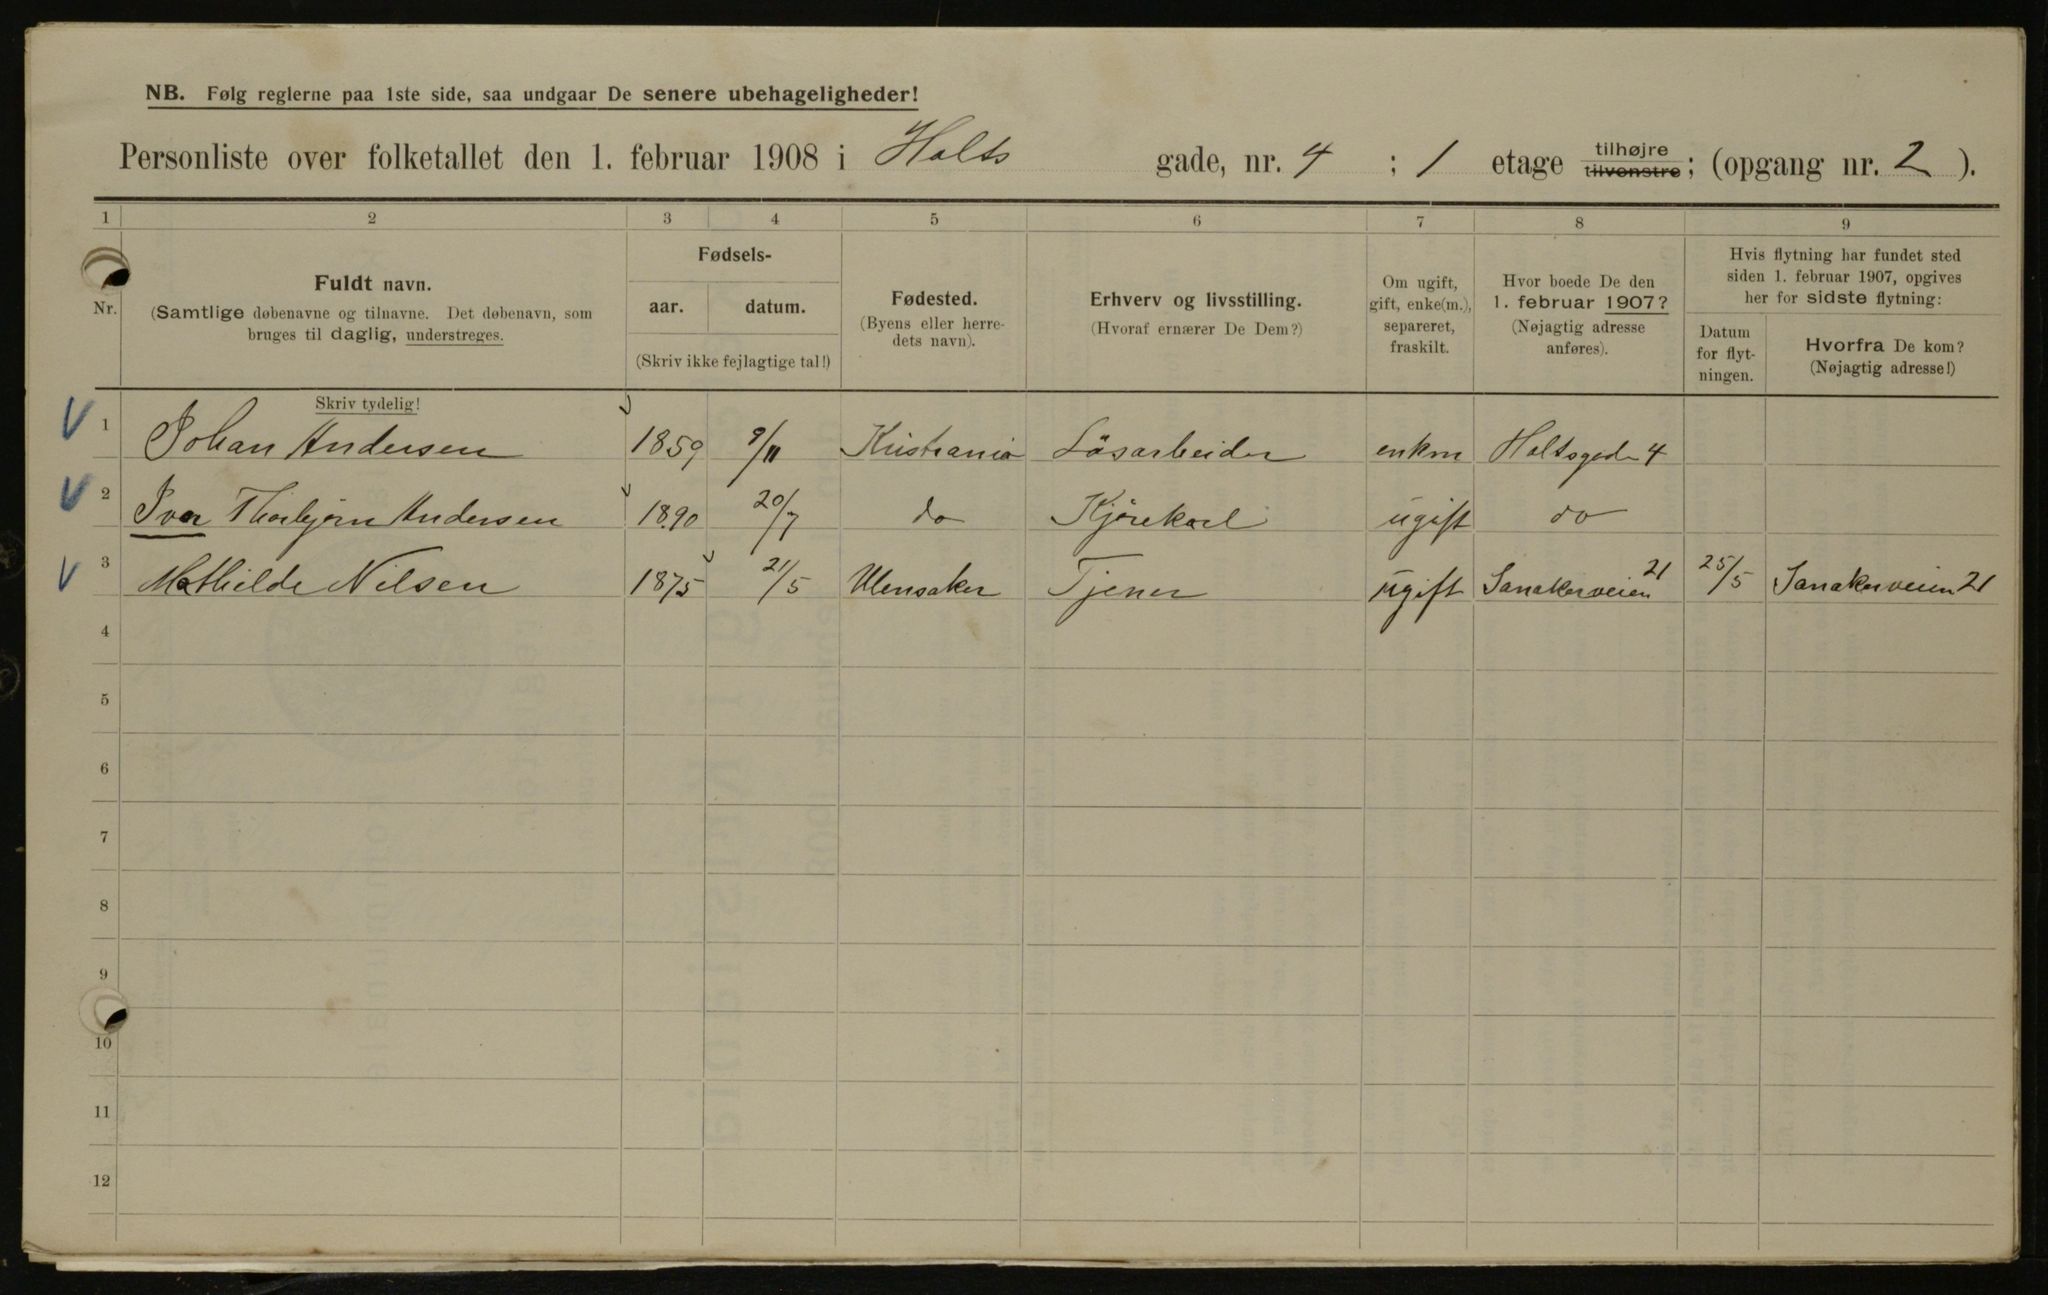 NB. Følg reglerne paa 1ste side, saa undgaar De senere ubehageligheder!
Personliste over folketallet den 1. februar 1908 i Holts gade, nr. 4 ; 1 etage tilhøjre tilvenstre; (opgang nr. 2 ).
1 2 3 4 5 6 7 8 9
Nr.
Fuldt navn.
(Samtlige døbenavne og tilnavne. Det døbenavn, som
bruges til daglig, understreges.
Skriv tydelig!
Fødsels-
aar. datum.
(Skriv ikke fejlagtige tal!)
Fødested.
(Byens eller herre-
dets navn).
Erhverv og livsstilling.
(Hvoraf ernærer De Dem?)
Om ugift,
gift, enke(m.),
separeret,
fraskilt.
Hvor boede De den
1. februar 1907?
(Nøjagtig adresse
anføres).
Hvis flytning har fundet sted
siden 1. februar 1907, opgives
her for sidste flytning:
Datum
for flyt-
ningen.
Hvorfra De kom?
(Nøjagtig adresse!)
1 Johan Andersen 1859 9/11 Kristiania Løsarbeider enkm Holtsgade 4
2 Ivar Thorbjørn Andersen 1890 20/7 do Kjørekarl ugift do
3 Mathilde Nilsen 1875 21/5 Ulensaker Tjener ugift Sanakerveien 21 25/5 Sanakerveien 21
4
5
6
7
8
9
10
11
12